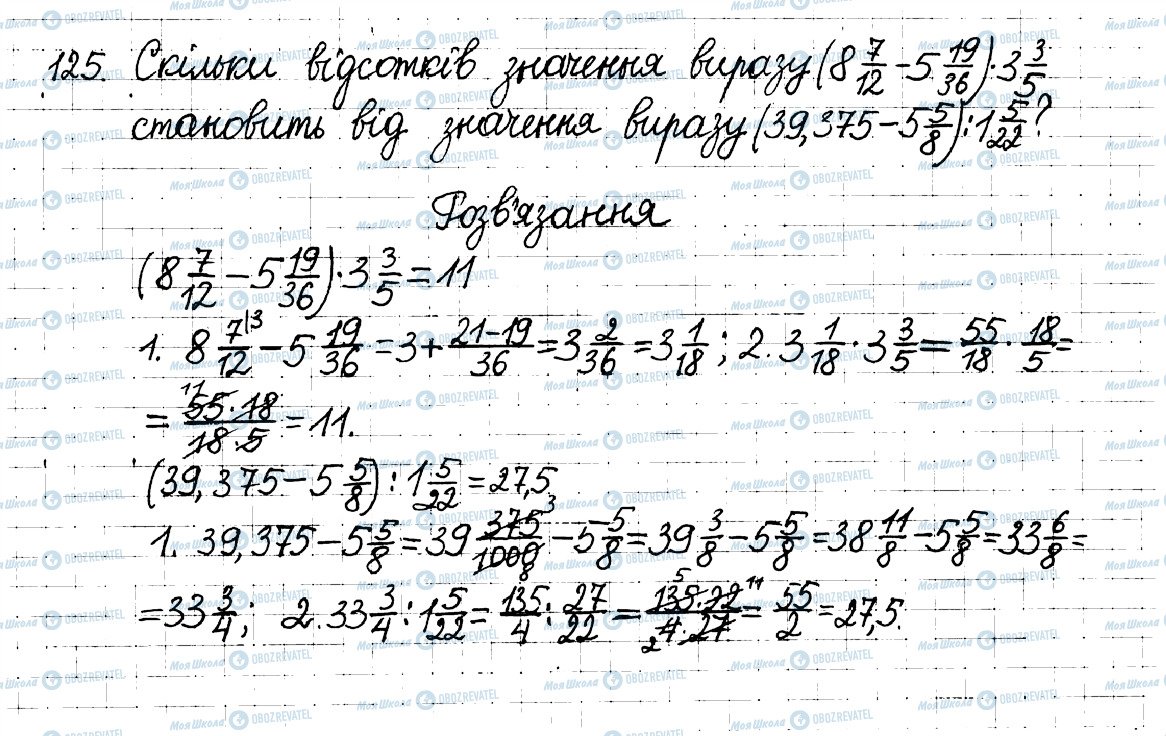 125. Скільки відсотків значення виразу (8 7/12 − 5 19/36) · 3 3/5
становить від значення виразу (39,375 − 5 5/8) : 1 5/22 ?
Розв'язання
(8 7/12 − 5 19/36) · 3 3/5 = 11
1. 8 7|3/12 − 5 19/36 = 3 + 21−19/36 = 3 2/36 = 3 1/18 ; 2. 3 1/18 · 3 3/5 = 55/18 · 18/5 =
= 11 55·18/18·5 = 11.
(39,375 − 5 5/8) : 1 5/22 = 27,5
1. 39,375 − 5 5/8 = 39 375 3/1000 8 − 5 5/8 = 39 3/8 − 5 5/8 = 38 11/8 − 5 5/8 = 33 6/8 =
= 33 3/4 ; 2. 33 3/4 : 1 5/22 = 135/4 : 27/22 = 5 135·22 11/2 4·27 = 55/2 = 27,5.
МояШкола OBOZREVATEL